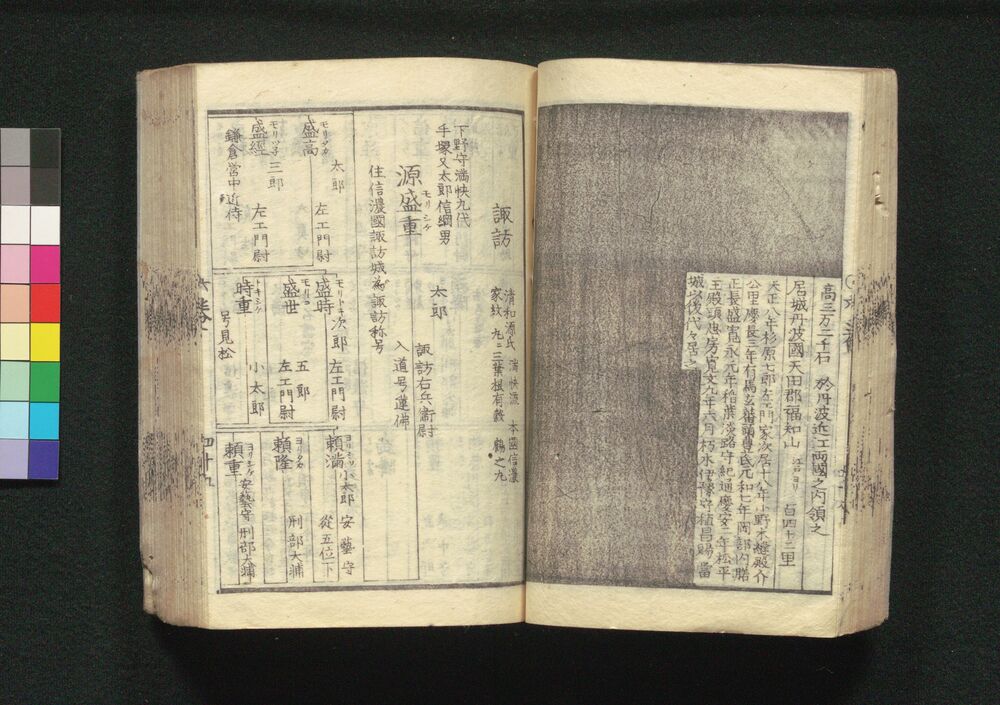 高三万二千石 於丹波近江両國之内領之
居城丹波國天田郡福知山 江戸ヨリ 百四十二里
天正八年杉原七郎左衛門家次居十八年小野木縫殿介
公田慶長三年有馬玄蕃頭豊氏元和七年岡部内膳
正長盛寛永元年稲葉淡路守紀通慶安二年松平
主殿頭忠房寛文九年六月朽木伊豫守植昌賜當
城以後代々居之
諏訪
清和源氏 満快流 本國信濃
家紋 九ニ三葉根有穀 鶴之丸
下野守満快九代
手塚又太郎信綱男
源盛重 モリシゲ
太郎
諏訪右兵衛尉
入道号蓮佛
住信濃國諏訪城為諏訪称号
盛高 モリタカ
太郎
左エ門尉
盛經 モリツネ
三郎
左エ門尉
鎌倉営中近侍
盛時 モリトキ
次郎
左エ門尉
盛世 モリヨ
五郎
左エ門尉
時重 トキシゲ
小太郎
号見松
頼満 ヨリミツ
小太郎 安藝守
從五位下
頼隆 ヨリタカ
刑部大輔
頼重 ヨリシゲ
安藝守 刑部大輔
四十九